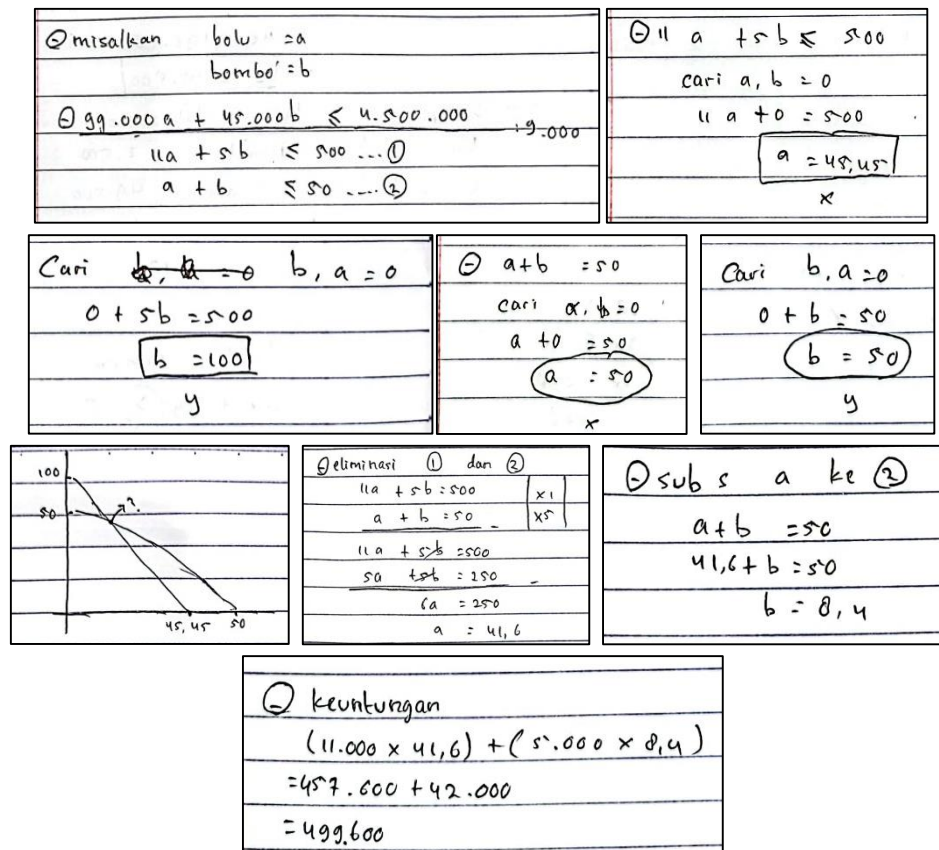 ⊖ misalkan bolu = a
bombo' = b
⊖ 99.000 a + 45.000 b ≤ 4.500.000
:9.000
11a + 5b ≤ 500 ... ①
a + b ≤ 50 .... ②
⊖ 11 a + 5 b ≤ 500
cari a, b = 0
11 a + 0 = 500
a = 45,45
x
Cari b, a = 0
0 + 5b = 500
b = 100
y
⊖ a+b = 50
cari a, b = 0
a + 0 = 50
a = 50
x
Cari b, a = 0
0 + b = 50
b = 50
y
100
50
?
45,45 50
⊖ eliminasi ① dan ②
11a + 5b = 500 x1
a + b = 50 - x5
11 a + 5b = 500
5a + 5b = 250 -
6a = 250
a = 41,6
⊖ subs a ke ②
a+b = 50
41,6 + b = 50
b = 8,4
⊖ keuntungan
(11.000 x 41,6) + (5.000 x 8,4)
= 457.600 + 42.000
= 499.600